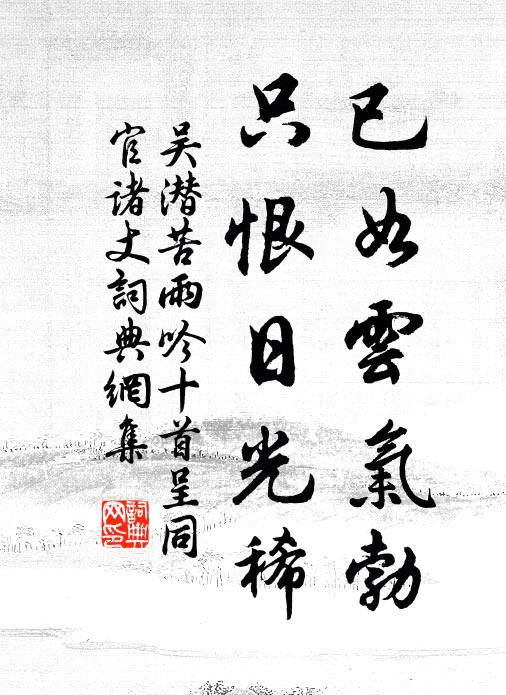 已如雲氣勃
只恨日光稀
吳潛苦雨吟十首呈同
官諸丈詞典網集
詞典網印